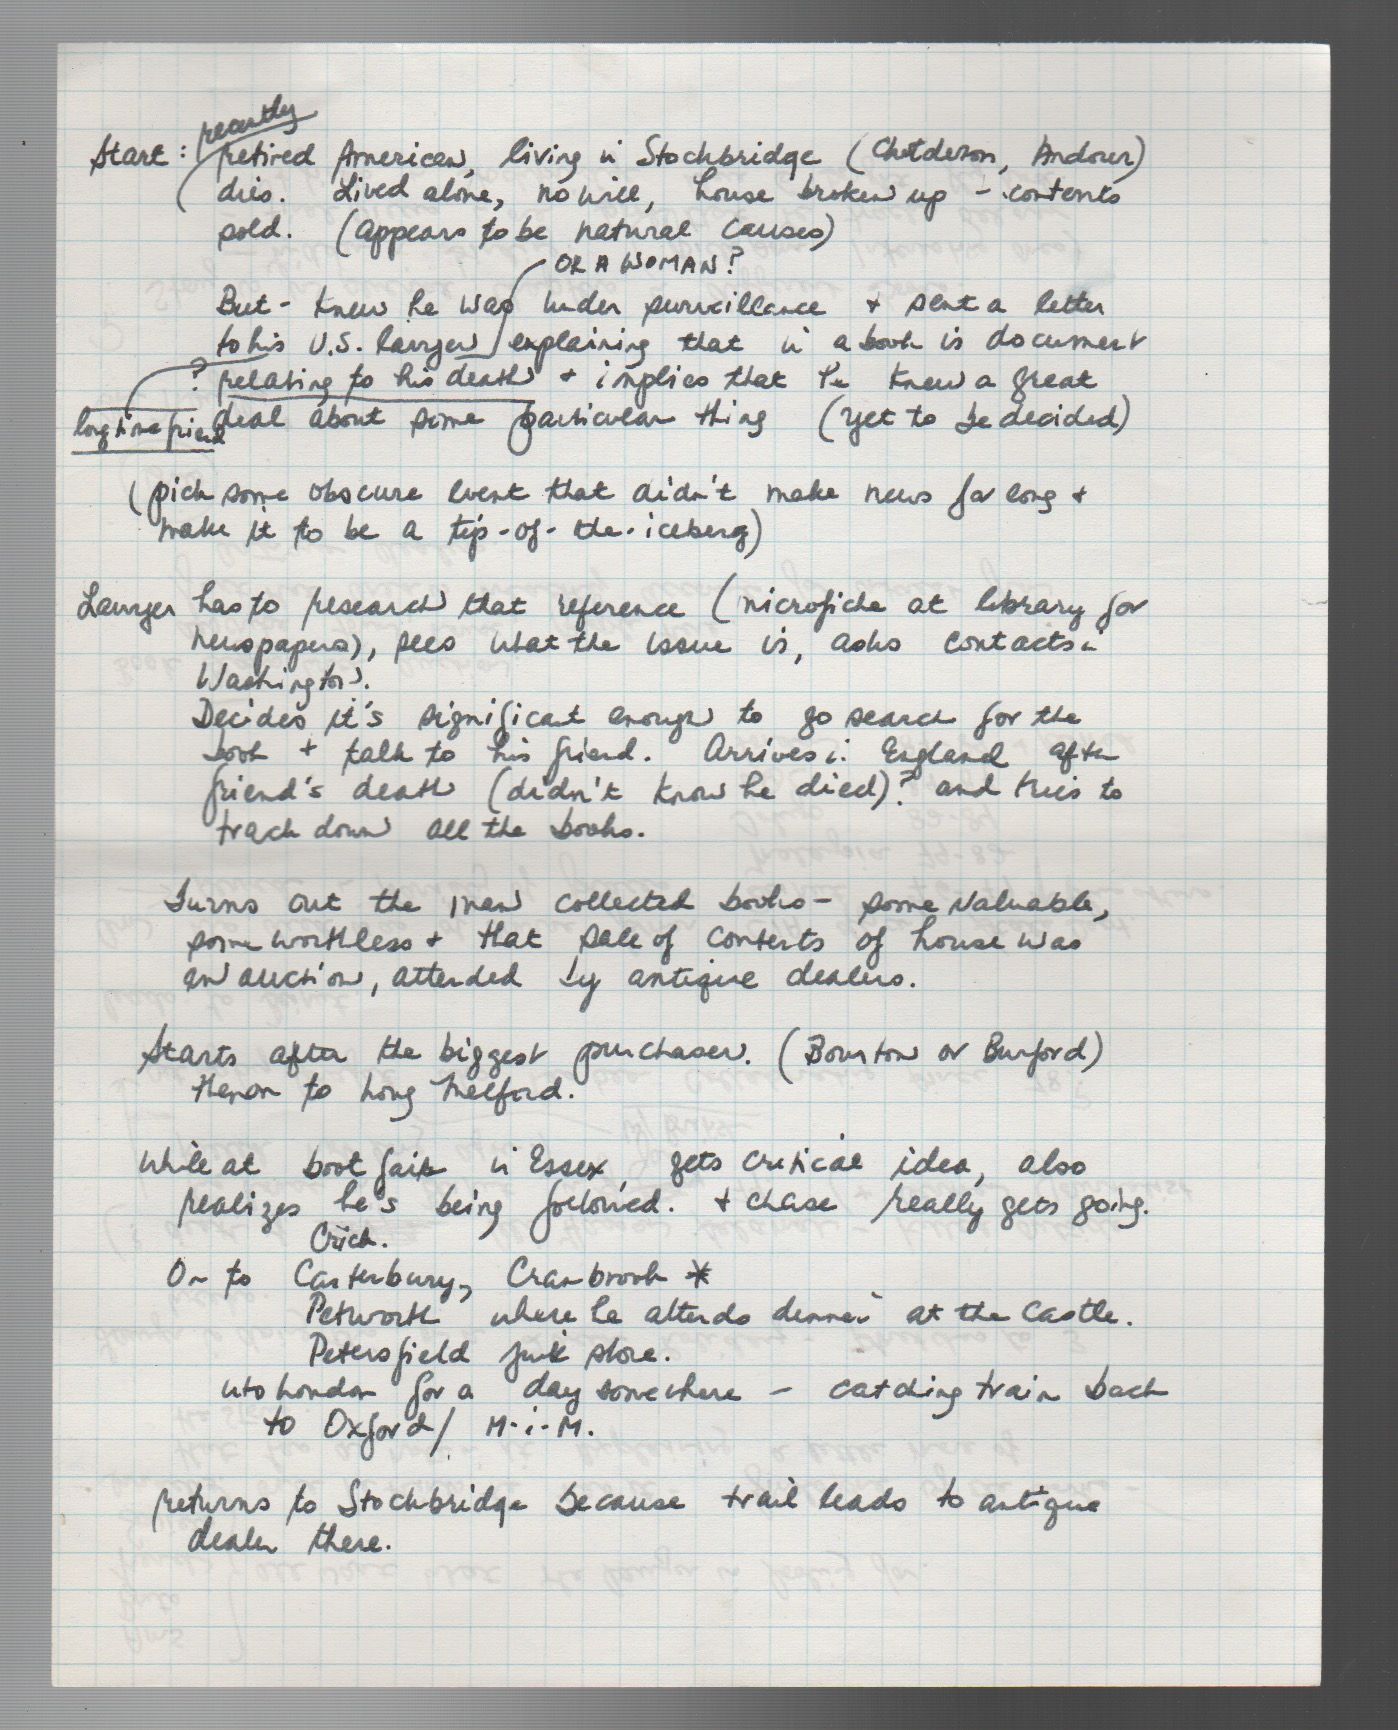 recently
Start: retired American, living in Stockbridge (Childerson, Andover)
dies. Lived alone, no will, house broken up - contents
sold. (appears to be natural causes)
OR A WOMAN?
But - knew he was under surveillance + sent a letter
to his U.S. lawyer explaining that in a book is document
? relating to his death + implies that he knew a great
long time friend
deal about some particular thing (yet to be decided)
(pick some obscure event that didn't make news for long +
make it to be a tip-of-the-iceberg)
Lawyer has to research that reference (microfiche at library for
newspapers), sees what the issue is, asks contacts in
Washington.
Decides it's significant enough to go search for the
book + talk to his friend. Arrives in England after
friend's death (didn't know he died)? and tries to
track down all the books.
Turns out the man collected books - some valuable,
some worthless + that sale of contents of house was
an auction, attended by antique dealers.
Starts after the biggest purchaser. (Bourton or Burford)
Then on to Long Melford.
While at boot fair in Essex, gets critical idea, also
realizes he's being followed. + chase really gets going.
Crich.
On to Canterbury, Cranbrook *
Petworth where he attends dinner at the castle.
Petersfield junk store.
into London for a day somewhere - catching train back
to Oxford/ M-i-M.
returns to Stockbridge because trail leads to antique
dealer there.